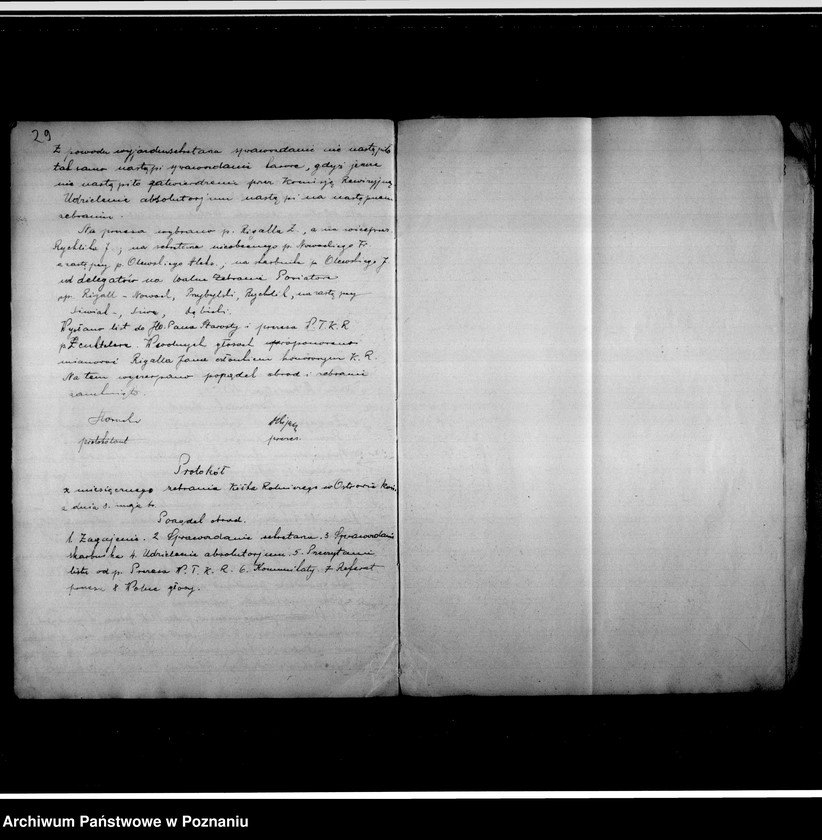 29
Z powodu wyjazdu sekretarza sprawozdanie nie nastąpiło
tak samo nastąpi sprawozdanie kasowe, gdyż jeszcze
nie nastąpiło zatwierdzenie przez Komisję Rewizyjną
Udzielenie absolutorjum nastąpi na następnem
zebraniu.
Na prezesa wybrano p. Rigalla Z., a na wiceprez.
Rychlika J.; na sekretarza nieobecnego p. Nowackiego Fr.
zastępcy p. Olewskiego Aleks.; na skarbnika p. Olewskiego J.
delegatów na Walne Zebranie Powiatowe
pp. Rigall - Nowack, Przybylski, Rychlik, na zastępcy
Siwiak
Wysłano list do JW. Pana Starosty i prezesa P.T.K.R
W wolnych głosach zaproponowano
mianować Rigalla Jana członkiem honorowym K. R.
Na tem wyczerpano porządek obrad i zebranie
zamknięto.
protokólant prezes.
Protokół
z miesięcznego zebrania Kółka Rolniczego w Ostrowie
z dnia 3. maja
Porządek obrad.
1. Zagajenie. 2. Sprawozdanie sekretarza. 3. Sprawozdanie
skarbnika 4. Udzielenie absolutorjum. 5. Przeczytanie
listu od p. Prezesa P. T. K. R. 6. Komunikaty. 7. Referat
prezesa 8. Wolne głosy.
Archiwum Państwowe w Poznaniu